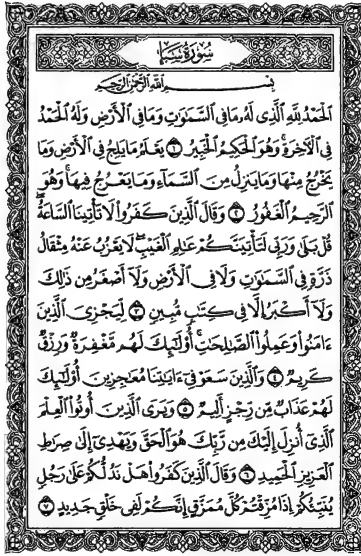 سُورَةُ سَبَإٍ
بِسْمِ اللَّهِ الرَّحْمَٰنِ الرَّحِيمِ
ٱلْحَمْدُ لِلَّهِ ٱلَّذِى لَهُۥ مَا فِى ٱلسَّمَٰوَٰتِ وَمَا فِى ٱلْأَرْضِ وَلَهُ ٱلْحَمْدُ
فِى ٱلْءَاخِرَةِۚ وَهُوَ ٱلْحَكِيمُ ٱلْخَبِيرُ ١ يَعْلَمُ مَا يَلِجُ فِى ٱلْأَرْضِ وَمَا
يَخْرُجُ مِنْهَا وَمَا يَنزِلُ مِنَ ٱلسَّمَآءِ وَمَا يَعْرُجُ فِيهَاۚ وَهُوَ
ٱلرَّحِيمُ ٱلْغَفُورُ ٢ وَقَالَ ٱلَّذِينَ كَفَرُوا۟ لَا تَأْتِينَا ٱلسَّاعَةُۖ
قُلْ بَلَىٰ وَرَبِّى لَتَأْتِيَنَّكُمْ عَٰلِمِ ٱلْغَيْبِۖ لَا يَعْزُبُ عَنْهُ مِثْقَالُ
ذَرَّةٍ فِى ٱلسَّمَٰوَٰتِ وَلَا فِى ٱلْأَرْضِ وَلَآ أَصْغَرُ مِن ذَٰلِكَ
وَلَآ أَكْبَرُ إِلَّا فِى كِتَٰبٍ مُّبِينٍ ٣ لِّيَجْزِىَ ٱلَّذِينَ
ءَامَنُوا۟ وَعَمِلُوا۟ ٱلصَّٰلِحَٰتِۚ أُو۟لَٰٓئِكَ لَهُم مَّغْفِرَةٌ وَرِزْقٌ
كَرِيمٌ ٤ وَٱلَّذِينَ سَعَوْ فِىٓ ءَايَٰتِنَا مُعَٰجِزِينَ أُو۟لَٰٓئِكَ
لَهُمْ عَذَابٌ مِّن رِّجْزٍ أَلِيمٌ ٥ وَيَرَى ٱلَّذِينَ أُوتُوا۟ ٱلْعِلْمَ
ٱلَّذِىٓ أُنزِلَ إِلَيْكَ مِن رَّبِّكَ هُوَ ٱلْحَقَّ وَيَهْدِىٓ إِلَىٰ صِرَٰطِ
ٱلْعَزِيزِ ٱلْحَمِيدِ ٦ وَقَالَ ٱلَّذِينَ كَفَرُوا۟ هَلْ نَدُلُّكُمْ عَلَىٰ رَجُلٍ
يُنَبِّئُكُمْ إِذَا مُزِّقْتُمْ كُلَّ مُمَزَّقٍ إِنَّكُمْ لَفِى خَلْقٍ جَدِيدٍ ٧